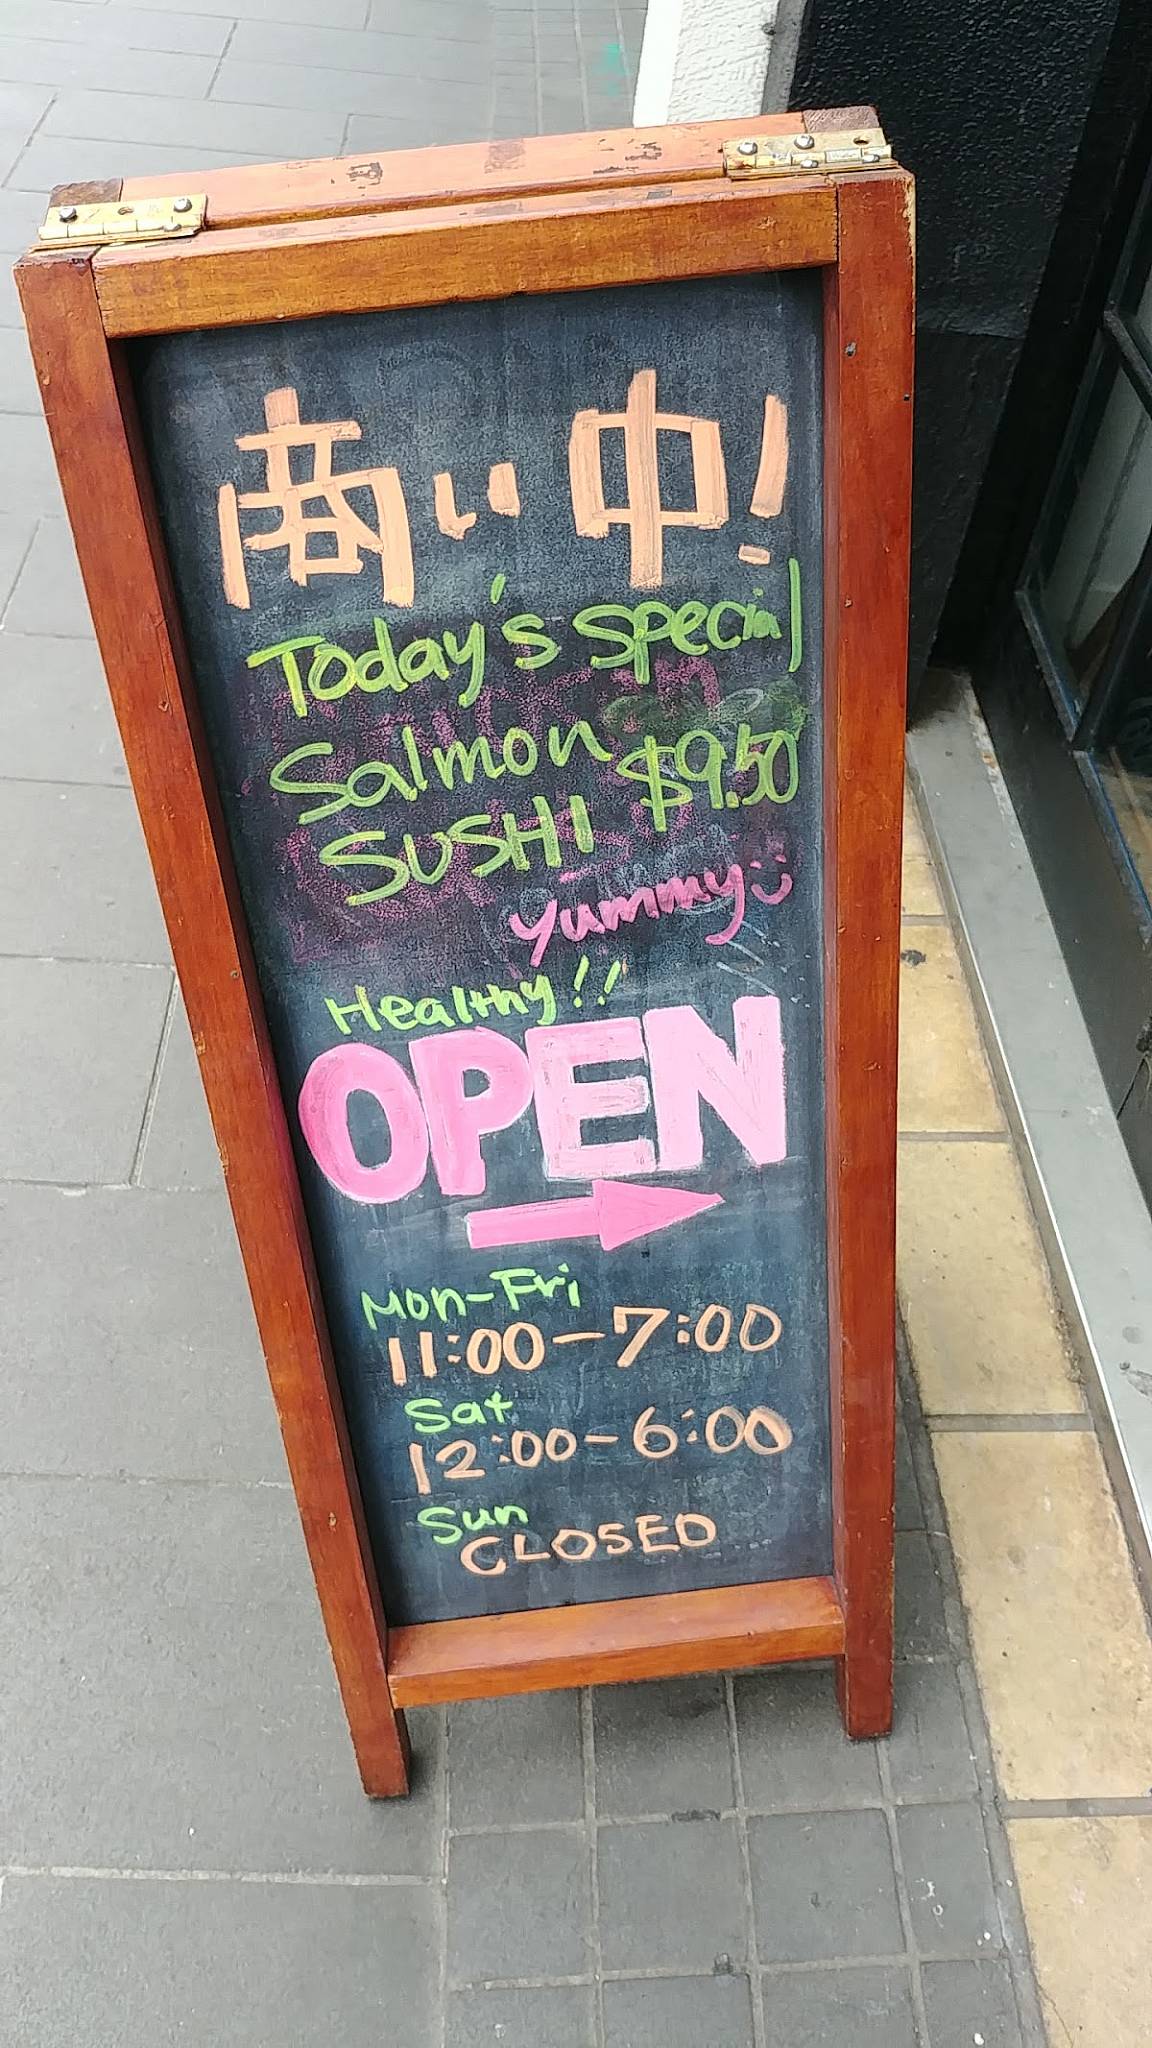 商い中!
Today's special
Salmon
SUSHI $9.50
Yummy
Healthy!!
OPEN
Mon-Fri
11:00-7:00
Sat
12:00-6:00
Sun
CLOSED